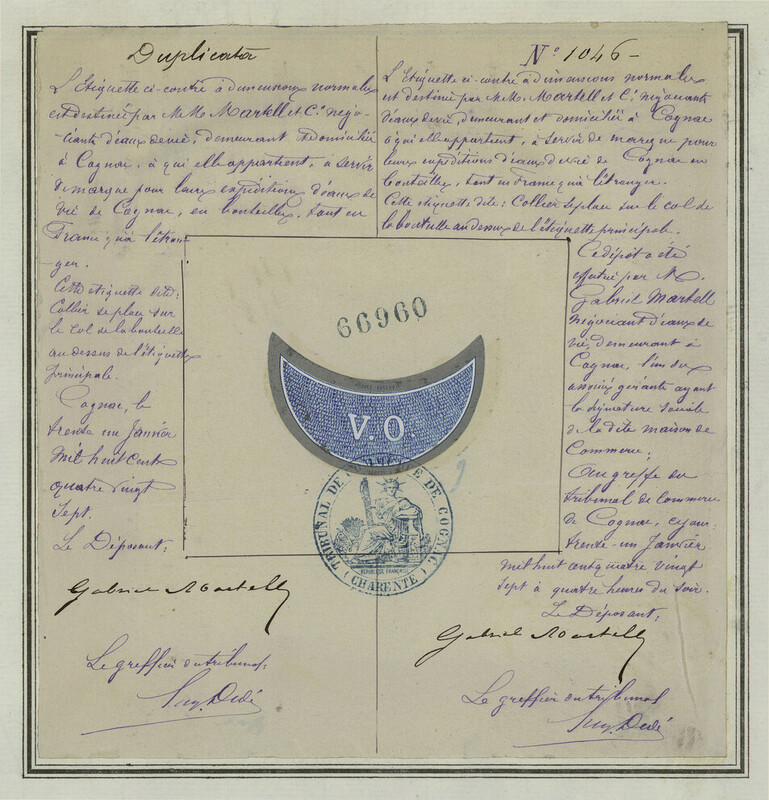 Duplicata
L'Etiquette ci-contre à dimensions normales
est destinée par M.M. Martell et Cie négo-
ciants d'eaux de vie, demeurant et domiciliés
à Cognac, à qui elle appartient, à servir
de marque pour leurs expéditions d'eaux de
vie de Cognac, en bouteilles, tant en
France qu'à l'étran-
ger.
Cette étiquette dite:
Collier se place sur
le col de la bouteille
au dessus de l'étiquette
principale.
Cognac, le
trente un Janvier
mil huit cent
quatre vingt
sept.
Le Déposant:
Gabriel Martell
Le greffier du tribunal:
N° 1046
L'Etiquette ci-contre à dimensions normales
est destinée par M.M. Martell et Cie négociants
d'eaux de vie, demeurant et domiciliés à Cognac
à qui elle appartient, à servir de marque pour
leurs expéditions d'eaux de vie de Cognac en
bouteilles, tant en France qu'à l'étranger.
Cette étiquette dite: Collier se place sur le col de
la bouteille au dessus de l'étiquette principale.
Ce dépôt a été
effectué par M.
Gabriel Martell
négociant d'eaux de
vie, demeurant à
Cognac, l'un des
associés gérants ayant
la signature sociale
de la dite maison de
Commerce;
Au greffe du
tribunal de Commerce
de Cognac, ce jour
trente-un Janvier
mil huit cent quatre vingt
sept à quatre heures du soir.
Le Déposant:
Gabriel Martell
Le greffier du tribunal
66960
V.O.
TRIBUNAL DE COMMERCE DE COGNAC
RÉPUBLIQUE FRANÇAISE
(CHARENTE)